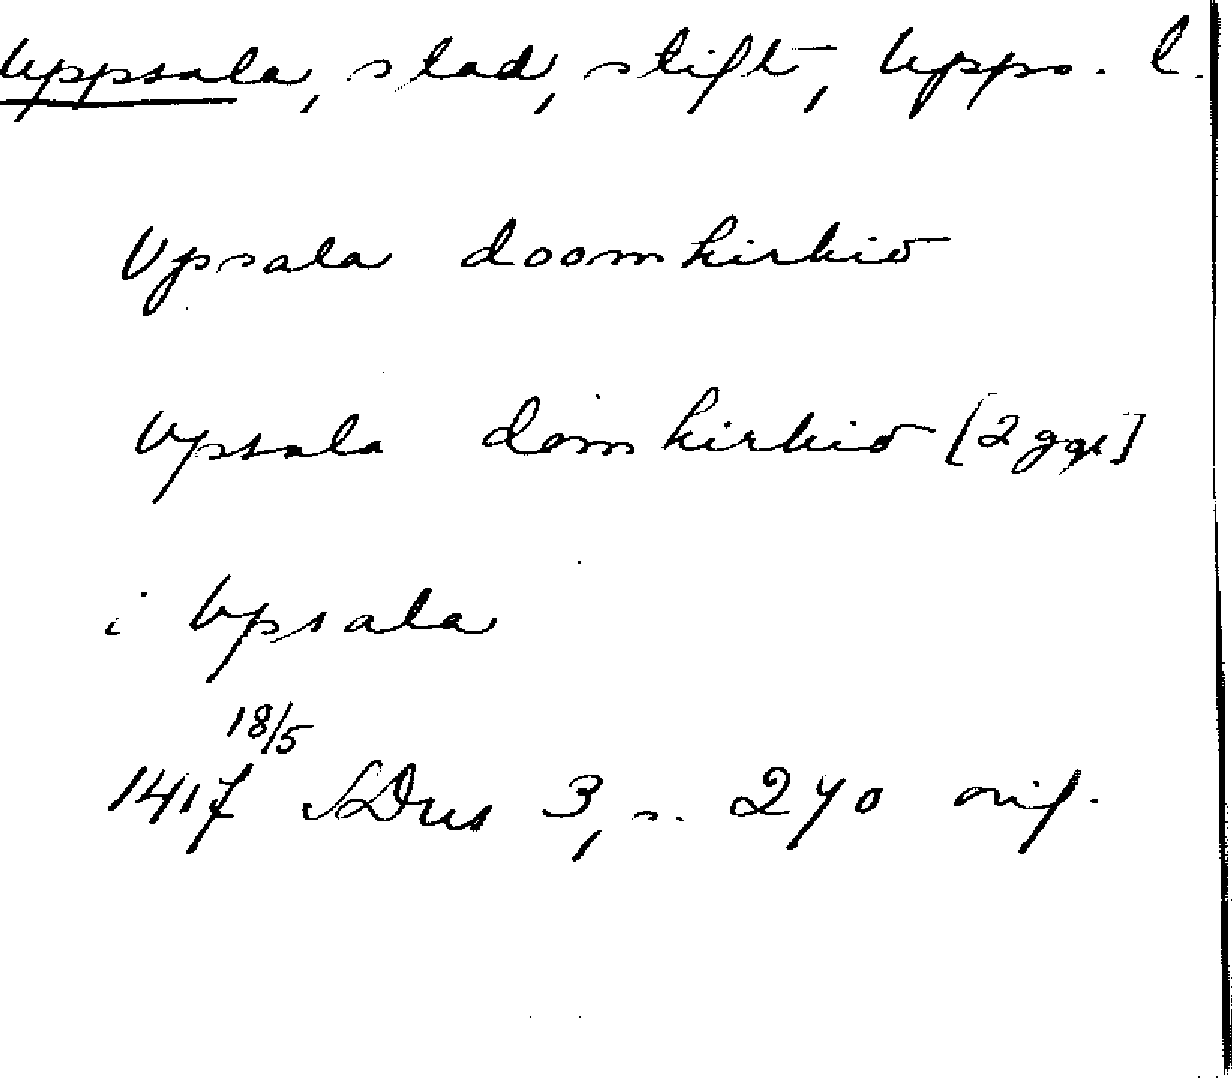 Uppsala, stad, stift, Upps. l.
Vpsala doomkirkio
Vpsala domkirkio [2 ggr]
i Vpsala
18/5
1417 SDns 3, s. 270 nif.